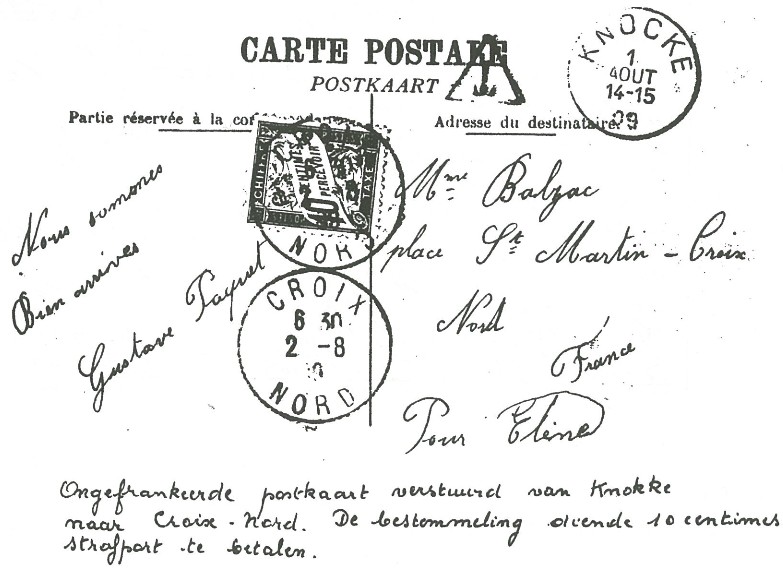 CARTE POSTALE
POSTKAART
T
KNOCKE
1
AOUT
14-15
09
Partie réservée à la cor
Adresse du destinataire.
CHIFFRE
CENTIMES
PERCEVOIR
TAXE
10
NOR
Nous somones
Bien arrivés
Gustave Paquet
CROIX
6 30
2 -8
NORD
Mme Balzac
place St Martin - Croix
Nord
France
Pour Eline
Ongefrankeerde postkaart verstuurd van Knokke
naar Croix-Nord. De bestemmeling diende 10 centimes
strafport te betalen.